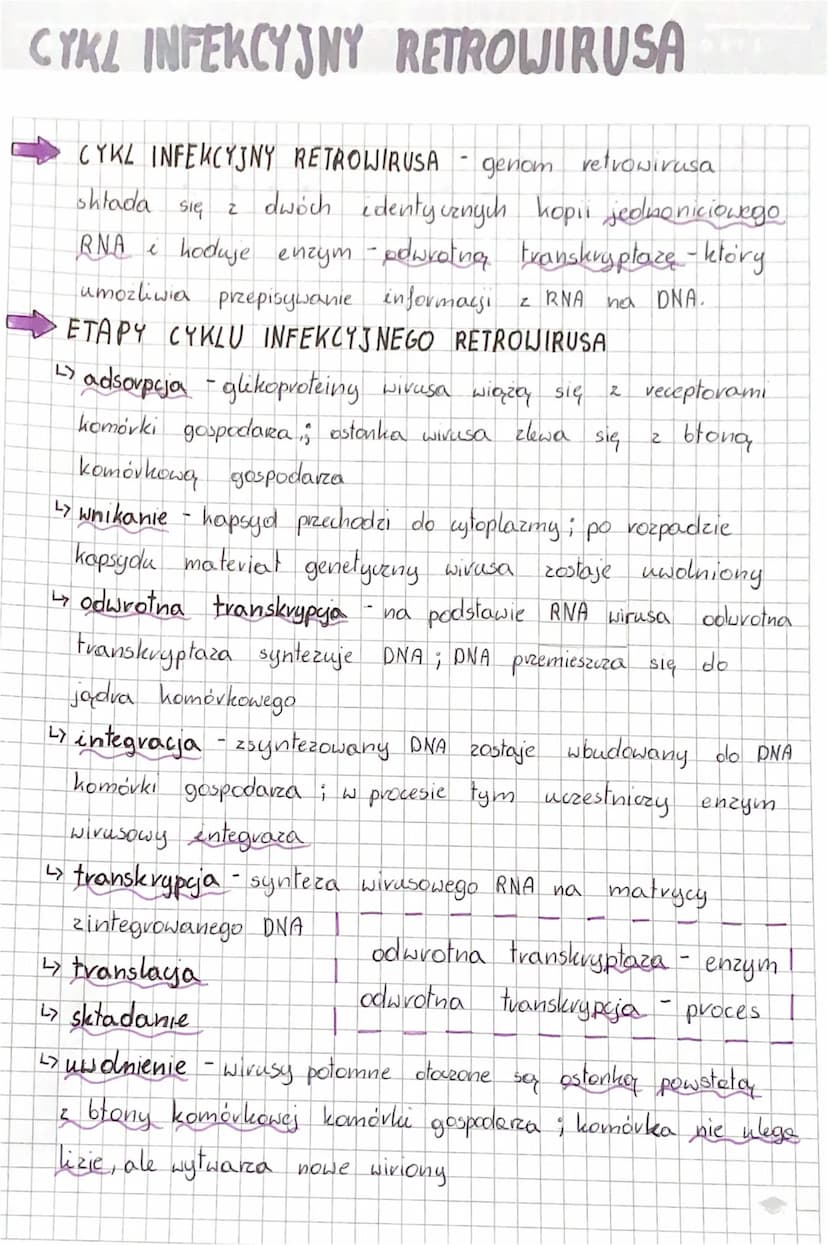 CYKL INFEKCYJNY RETROWIRUSA
CYKL INFEKCYJNY RETROWIRUSA - genom retrowirusa
składa się z dwóch identycznych kopii jednoniciowego
RNA i koduje enzym - odwrotną transkryptazę - który
umożliwia przepisywanie informacji z RNA na DNA.
ETAPY CYKLU INFEKCYJNEGO RETROWIRUSA
↳ adsorpcja - glikoproteiny wirusa wiążą się z receptorami
komórki gospodarza; osłonka wirusa zlewa się z błoną
komórkową gospodarza
↳ wnikanie - kapsyd przechodzi do cytoplazmy; po rozpadzie
kapsydu materiał genetyczny wirusa zostaje uwolniony
↳ odwrotna transkrypcja - na podstawie RNA wirusa odwrotna
transkryptaza syntezuje DNA; DNA przemieszcza się do
jądra komórkowego
↳ integracja - zsyntezowany DNA zostaje wbudowany do DNA
komórki gospodarza; w procesie tym uczestniczy enzym
wirusowy integraza
↳ transkrypcja - synteza wirusowego RNA na matrycy
zintegrowanego DNA
odwrotna transkryptaza - enzym
odwrotna transkrypcja - proces
↳ translacja
↳ składanie
↳ uwolnienie - wirusy potomne otoczone są osłonką powstałą
z błony komórkowej komórki gospodarza; komórka nie ulega
lizie, ale wytwarza nowe wiriony